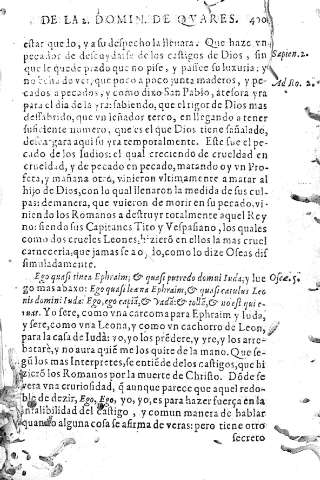 DE LA 2. DOMIN. DE QVARES. 490
estar que lo, y a su despecho la llenara. Que haze vn
pecador de descuydarse de los castigos de Dios, sin Sapien. 2.
que le quede prado que no pise, y passee su luxuria: y
no echa de ver, que poco a poco junta maderos, y pe- Ad Ro. 2.
cados a pecados, y como dixo San Pablo, atesora yra
para el dia de la yra: sabiendo, que el rigor de Dios mas
dessabrido, que vn leñador terco, en llegando a tener
suficiente numero, que es el que Dios tiene señalado,
descargara aqui su yra temporalmente. Este fue el pe-
cado de los Iudios: el qual creciendo de crueldad en
crueldad, y de pecado en pecado, matando oy vn Pro-
feta, y mañana otro, vinieron vltimamente a matar al
hijo de Dios, con lo qual llenaron la medida de sus cul-
pas: demanera, que vuieron de morir en su pecado. vi-
niendo los Romanos a destruyr totalmente aquel Rey
no: siendo sus Capitanes Tito y Vespasiano, los quales
como dos crueles Leones, hizierõ en ellos la mas cruel
carneceria, que jamas se a o lo, como lo dize Oseas dis
simuladamente.
Ego quasi tinea Ephraim; & quasi putredo domui Iuda; y lue Oseæ. 5.
go mas abaxo: Ego quasi leæna Ephraim, & quasi catulus Leo
nis domini: Iuda: Ego, ego capiã, & Vadã: & tollã, & nõ est qui e-
ruat. Yo sere, como vna carcoma para Ephraim y Iuda,
y sere, como vna Leona, y como vn cachorro de Leon,
para la casa de Iudâ: yo, yo los prẽdere, y yre, y los arre-
batarè, y no aura quiẽ me los quite de la mano. Que se-
gũ los mas Interpretes, se entiẽde de los castigos, que hi
zierõ los Romanos por la muerte de Christo. Dõde se
vera vna curiosidad, q̃ aunque parece que aquel redo-
ble de dezir, Ego, Ego, yo, yo, es para hazer fuerça en la
infalibilidad del castigo, y comun manera de hablar
quando alguna cosa se afirma de veras: pero tiene otro
secreto